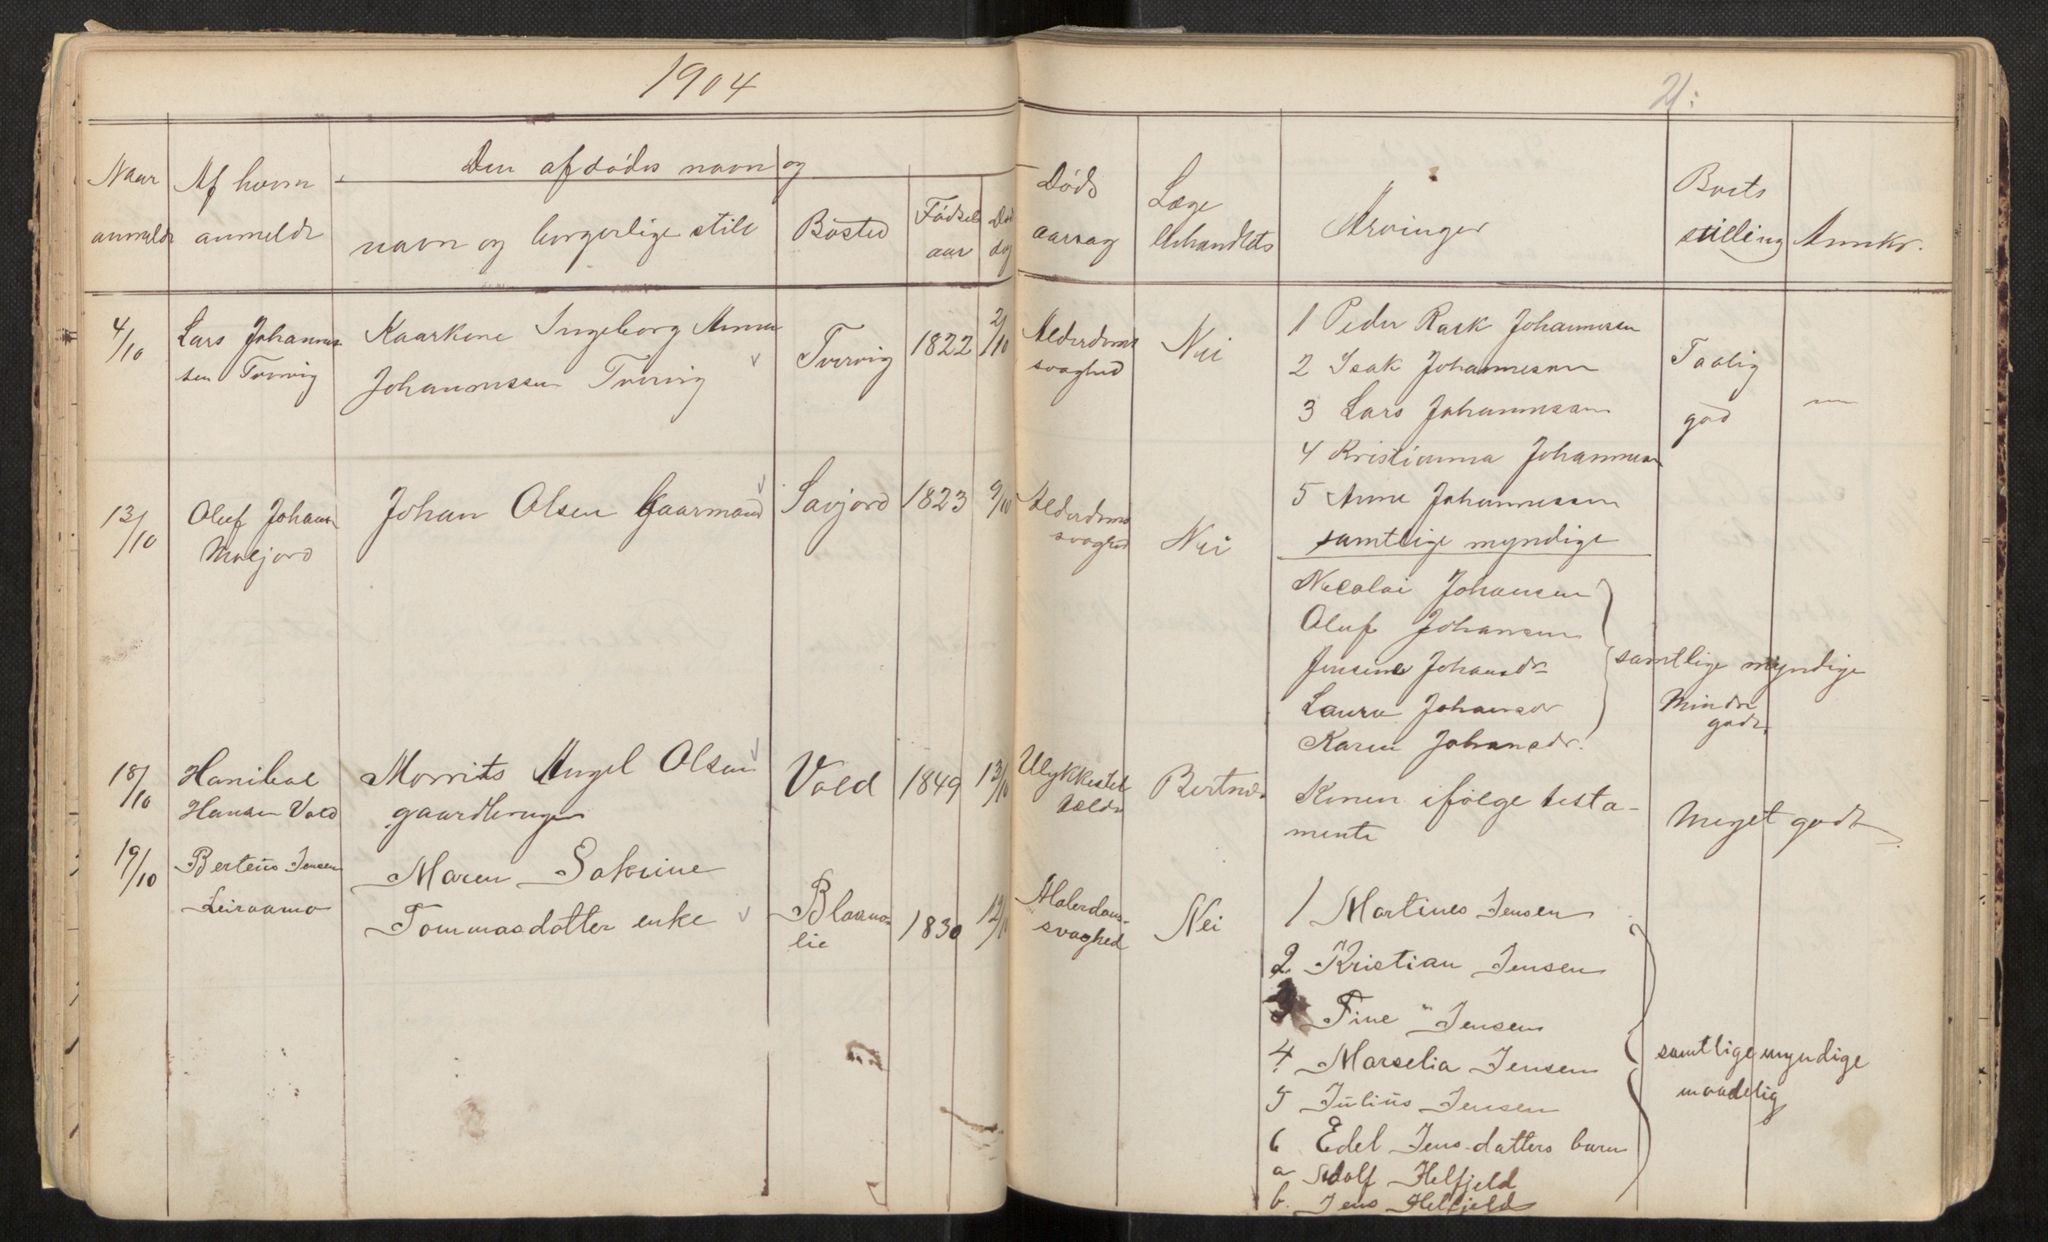 1904
21:
Den afdødes navn og
Naar anmeldt
Af hvem anmeldt
navn og borgerlige stilling
Bosted
Fødsels aar
Døds dag
Døds aarsag
Læge behandlet
Arvinger
Boets stilling
Anmkr.
4/10
Lars Johannes
sen Tvervig
Kaarkone Ingeborg Anna
Johannessen Tvervig
Tvervig
1822
2/10
Alderdoms
svaghed
Nei
1 Peder Rask Johannessen
2 Isak Johannesen
3 Lars Johannessen
4 Kristianna Johannessen
5 Anne Johannessen
samtlige myndige
Taalig
god
—
13/10
Oluf Johan
Misljord
Johan Olsen Kaarmand
Savjord
1823
9/10
Alderdoms
svaghed
Nei
Nicolai Johansen
Oluf Johansen
Jensine Johansdr
Laura Johansdr
Karen Johansdr.
samtlige myndige
Mindre
godt
18/10
Hanibal
Hansen Vold
Morrits Angel Olsen
gaardbruger
Vold
1849
13/10
Ulykkestil
fælde
Konen ifølge testa-
mente
Meget godt
19/10
Berteus Jensen
Leiraamo
Maren Sakrine
Tommasdatter enke
Blaamo-
lie
1830
12/10
Alderdoms-
svaghed
Nei
1 Martines Jensen
2 Kristian Jensen
3 Fine Jensen
4 Marselia Jensen
5 Julius Jensen
6 Edel Jens datters barn
a Adolf Helfjeld
b. Jens Helfjeld
samtlige myndige
maadelig